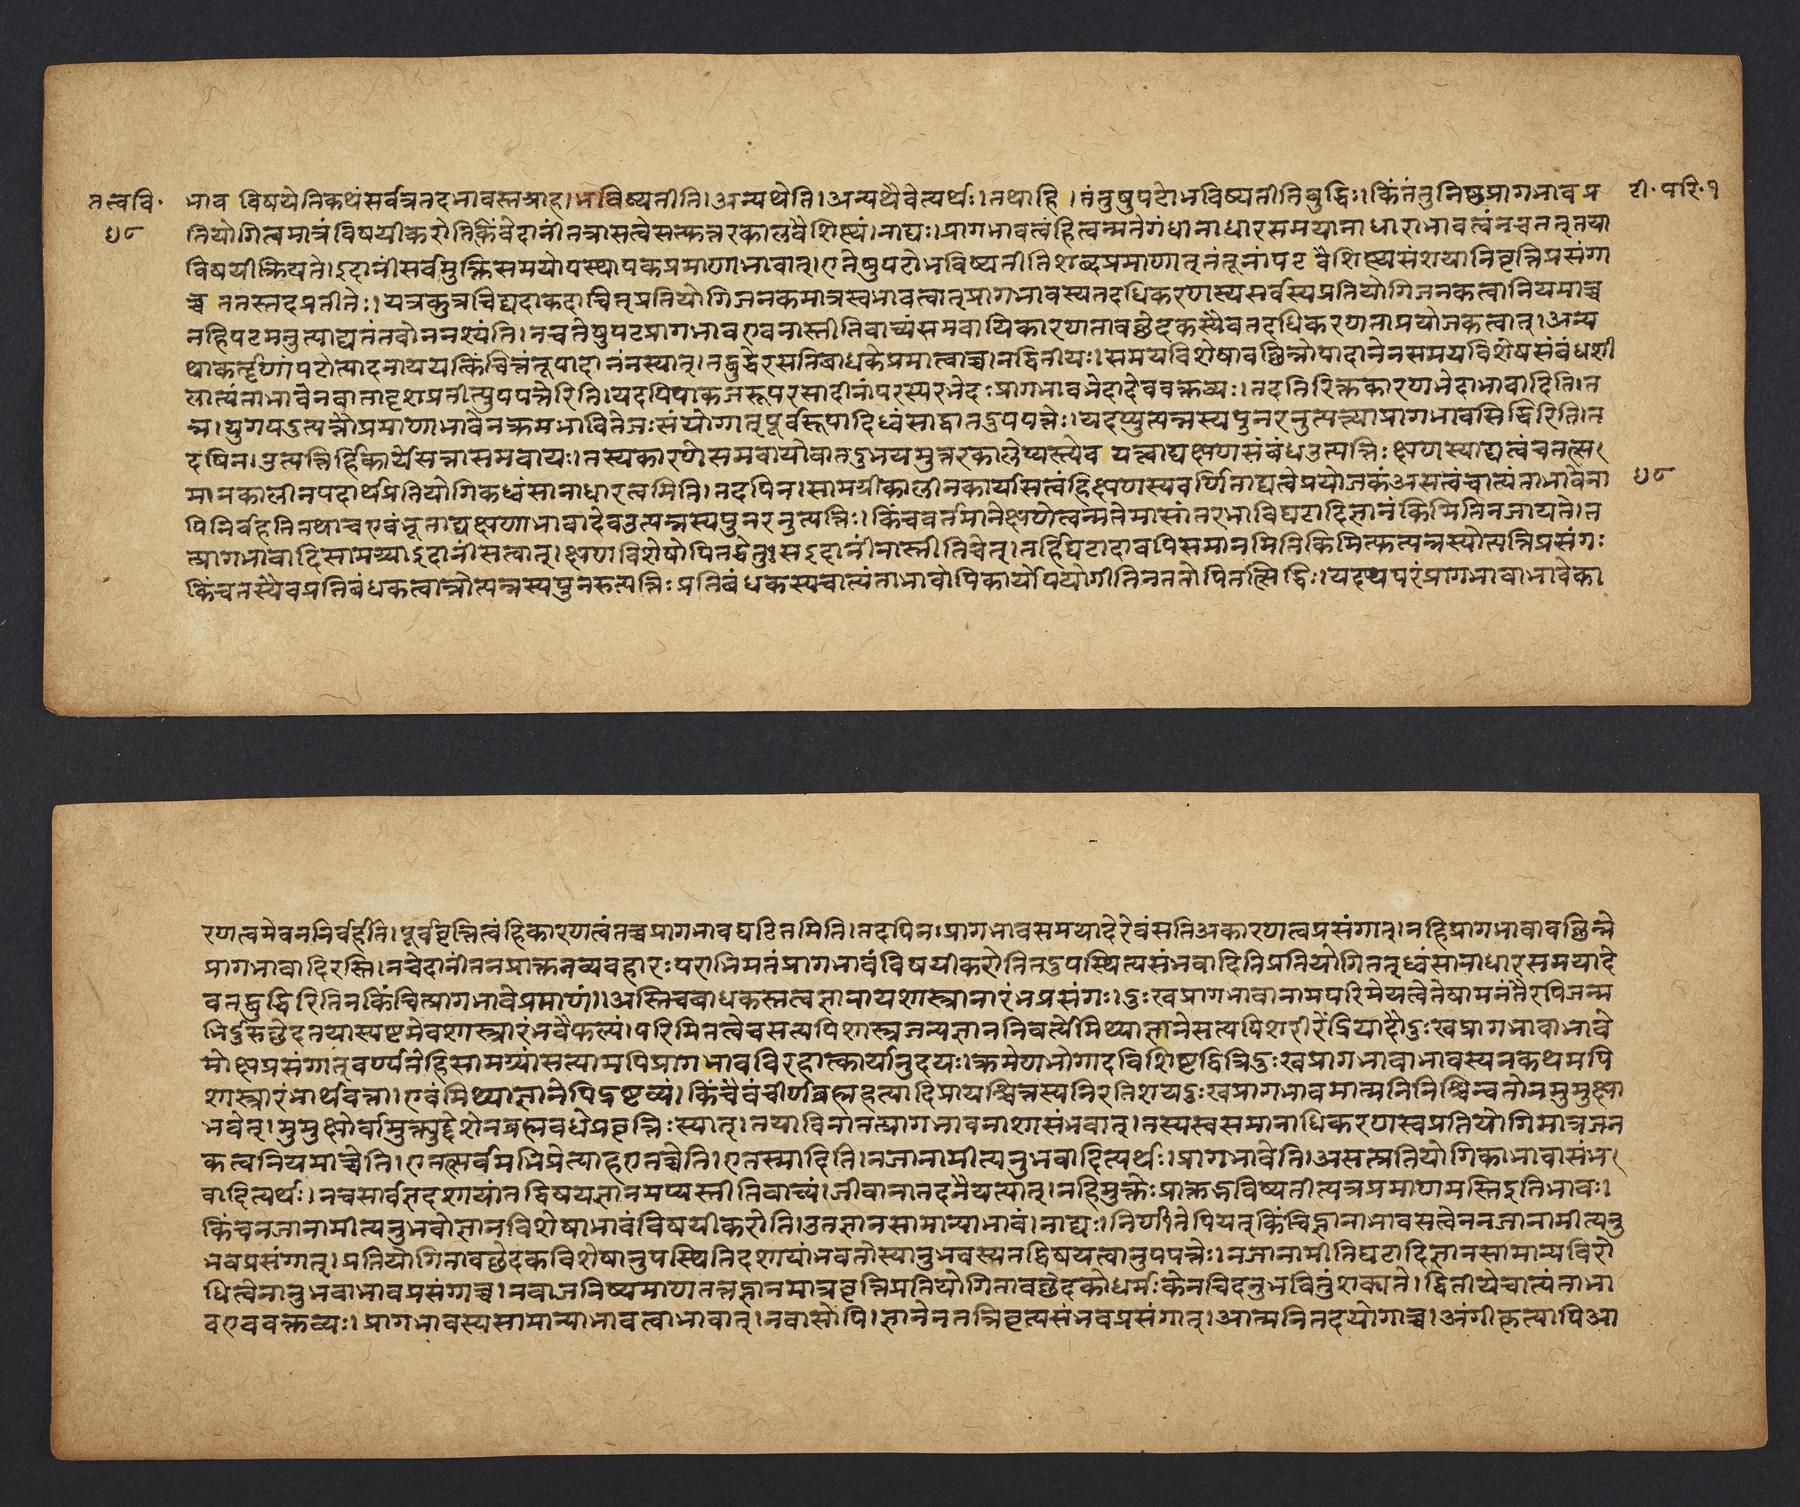 तत्ववि· भाव विषयेतिकथंसर्वत्रतदभावस्तत्राह।भविष्यतीति।अन्यथेति।अन्यथैवेत्यर्थः।तथाहि।तंतुषुपटोभविष्यतीतिबुद्धिः।किंतंतुनिष्ठप्रागभावप्र टी·परि·१
७८ तियोगित्वमात्रंविषयीकरोतिकिंवेदानींतत्रासत्वेसत्युत्तरकालवैशिष्ट्यं।नाद्यः।प्रागभावत्वंहित्वन्मतेगंधानाधारसमयानाधाराभावत्वंनचतत्तया
विषयीक्रियते।इदानींसर्वमुक्तिसमयोपस्थापकप्रमाणाभावात्।एतेषुपटोभविष्यतीतिशब्दप्रमाणात्तंतूनांपटवैशिष्ट्यसंशयानिवृत्तिप्रसंगा
च्च ततस्तदप्रतीतेः।यत्रकुत्रचिद्यदाकदाचित्प्रतियोगिजनकमात्रस्वभावत्वात्प्रागभावस्यतदधिकरणस्यसर्वस्यप्रतियोगिजनकत्वानियमाच्च
नहिपटमनुत्पाद्यतंतवोननश्यंति।नचतेषुपटप्रागभावएवनास्तीतिवाच्यंसमवायिकारणतावछेदकस्यैवतदधिकरणताप्रयोजकत्वात्।अन्य
थाकर्तॄणांपटोत्पादनाययत्किंचित्तंतूपादानंनस्यात्।तद्बुद्धेरसतिबाधकेप्रमात्वाच्च।नद्वितीयः।समयविशेषावछिन्नोपादानेनसमयविशेषसंबंधशी
लात्यंताभावेनवातादृशप्रतीत्युपपत्तेरिति।यदपिपाकजरूपरसादीनांपरस्परभेदःप्रागभावभेदादेववक्तव्यः।तदतिरिक्तकारणभेदाभावादिति।त
न्न।युगपदुत्पत्तौप्रमाणाभावेनक्रमभावितेजःसंयोगात्पूर्वरूपादिध्वंसाद्वातदुपपत्तेः।यदप्युत्पन्नस्यपुनरनुत्पत्त्याप्रागभावसिद्धिरिति।त
दपिन।उत्पत्तिर्हिकार्यसत्तासमवायः।तस्यकारणेसमवायोवातदुभयमुत्तरकालेप्यस्त्येव यत्त्वाद्यक्षणसंबंधउत्पत्तिःक्षणस्याद्यत्वंचतत्स
मानकालीनपदार्थप्रतियोगिकध्वंसानाधारत्वमिति।तदपिन।सामयीकालीनकार्यासत्वंहिक्षणस्यवर्णिताद्यत्वेप्रयोजकंअसत्वंचात्यंताभावेना ७८
पिनिर्वहतितथाचएवंभूताद्यक्षणाभावादेवउत्पन्नस्यपुनरनुत्पत्तिः।किंचवर्तमानेक्षणेत्वन्मतेमासांतरभाविघटादिज्ञानंकिमितिनजायते।त
त्प्रागभावादिसामग्र्याइदानींसत्वात्।क्षणविशेषोपितद्धेतुःसइदानींनास्तीतिचेत्।तर्हिघटादावपिसमानमितिकिमित्युत्पन्नस्योत्पत्तिप्रसंगः
किंचतस्यैवप्रतिबंधकत्वान्नोत्पन्नस्यपुनरुत्पत्तिःप्रतिबंधकस्यचात्यंताभावोपिकार्योपयोगीतिनततोपितत्सिद्धिः।यदप्यपरंप्रागभावाभावेका
रणत्वमेवननिर्वहति।पूर्ववृत्तित्वंहिकारणत्वंतच्चप्रागभावघटितमिति।तदपिन।प्रागभावसमयादेरेवंसतिअकारणत्वप्रसंगात्।नहिप्रागभावावछिन्ने
प्रागभावादिरस्ति।नचेदानींतनप्राक्तनव्यवहारःपराभिमतंप्रागभावंविषयीकरोतितदुपस्थित्यसंभवादितिप्रतियोगितत्ध्वंसानाधारसमयादे
वतद्बुद्धिरितिनकिंचित्प्रागभावेप्रमाणं।।अस्तिचबाधकस्तत्वज्ञानायशास्त्रानारंभप्रसंगः।दुःखप्रागभावानामपरिमेयत्वेतेषामनंतैरपिजन्म
भिर्दुरुछेदतयास्पष्टमेवशास्त्रारंभवैफल्यं।परिमितत्वेचसत्यपिशास्त्रजन्यज्ञाननिवर्त्येमिथ्याज्ञानेसत्यपिशरीरेंद्रियादौदुःखप्रागभावाभावे
मोक्षप्रसंगात्वर्ण्यतेहिसामग्र्यांसत्यामपिप्रागभावविरहात्कार्यानुदयः।क्रमेणभोगादविशिष्टद्वित्रिदुःखप्रागभावाभावस्यनकथमपि
शास्त्रारंभार्थवत्ता।एवंमिथ्याज्ञानेपिद्रष्टव्यं।किंचैवंचीर्णब्रह्महत्यादिप्रायश्चित्तस्यनिरतिशयदुःखप्रागभावमात्मनिनिश्चिन्वतोनमुमुक्षा
भवेत्।मुमुक्षोर्वामुक्त्युद्देशेनब्रह्मवधेप्रवृत्तिःस्यात्।तयाविनातत्प्रागभावनाशासंभवात्।तस्यस्वसमानाधिकरणस्वप्रतियोगिमात्रजन
कत्वनियमाच्चेति।एतत्सर्वमभिप्रेत्याहएतच्चेति।एतस्मादिति।नजानामीत्यनुभवादित्यर्थः।प्रागभावेति।असत्प्रतियोगिकाभावासंभ
वादित्यर्थः।नचसार्वतद्दशायांतद्विषयज्ञानमप्यस्तीतिवाच्यं।जीवानांतदनैयत्यात्।नहिमुक्तेःप्राक्तद्भविष्यतीत्यत्रप्रमाणमस्तिइतिभावः।
किंचनजानामीत्यनुभवोज्ञानविशेषाभावंविषयीकरोति।उतज्ञानसामान्याभावं।नाद्यः।निर्णीतेपियत्किंचिद्ज्ञानाभावसत्वेननजानामीत्यनु
भवप्रसंगात्।प्रतियोगितावछेदकविशेषानुपस्थितिदशायांभवतोस्यानुभवस्यतद्विषयत्वानुपपत्तेः।नजानामीतिघटादिज्ञानसामान्यविरो
धित्वेनानुभवाभावप्रसंगाच्च।नवाजनिष्यमाणतत्तद्ज्ञानमात्रवृत्तिप्रतियोगितावछेदकोधर्मःकेनचिदनुभवितुंशक्यते।द्वितीयेचात्यंताभा
वएववक्तव्यः।प्रागभावस्यसामान्याभावत्वाभावात्।नवासोपि।ज्ञानेनतन्निवृत्यसंभवप्रसंगात्।आत्मनितदयोगाच्च।अंगीकृत्यापिआ